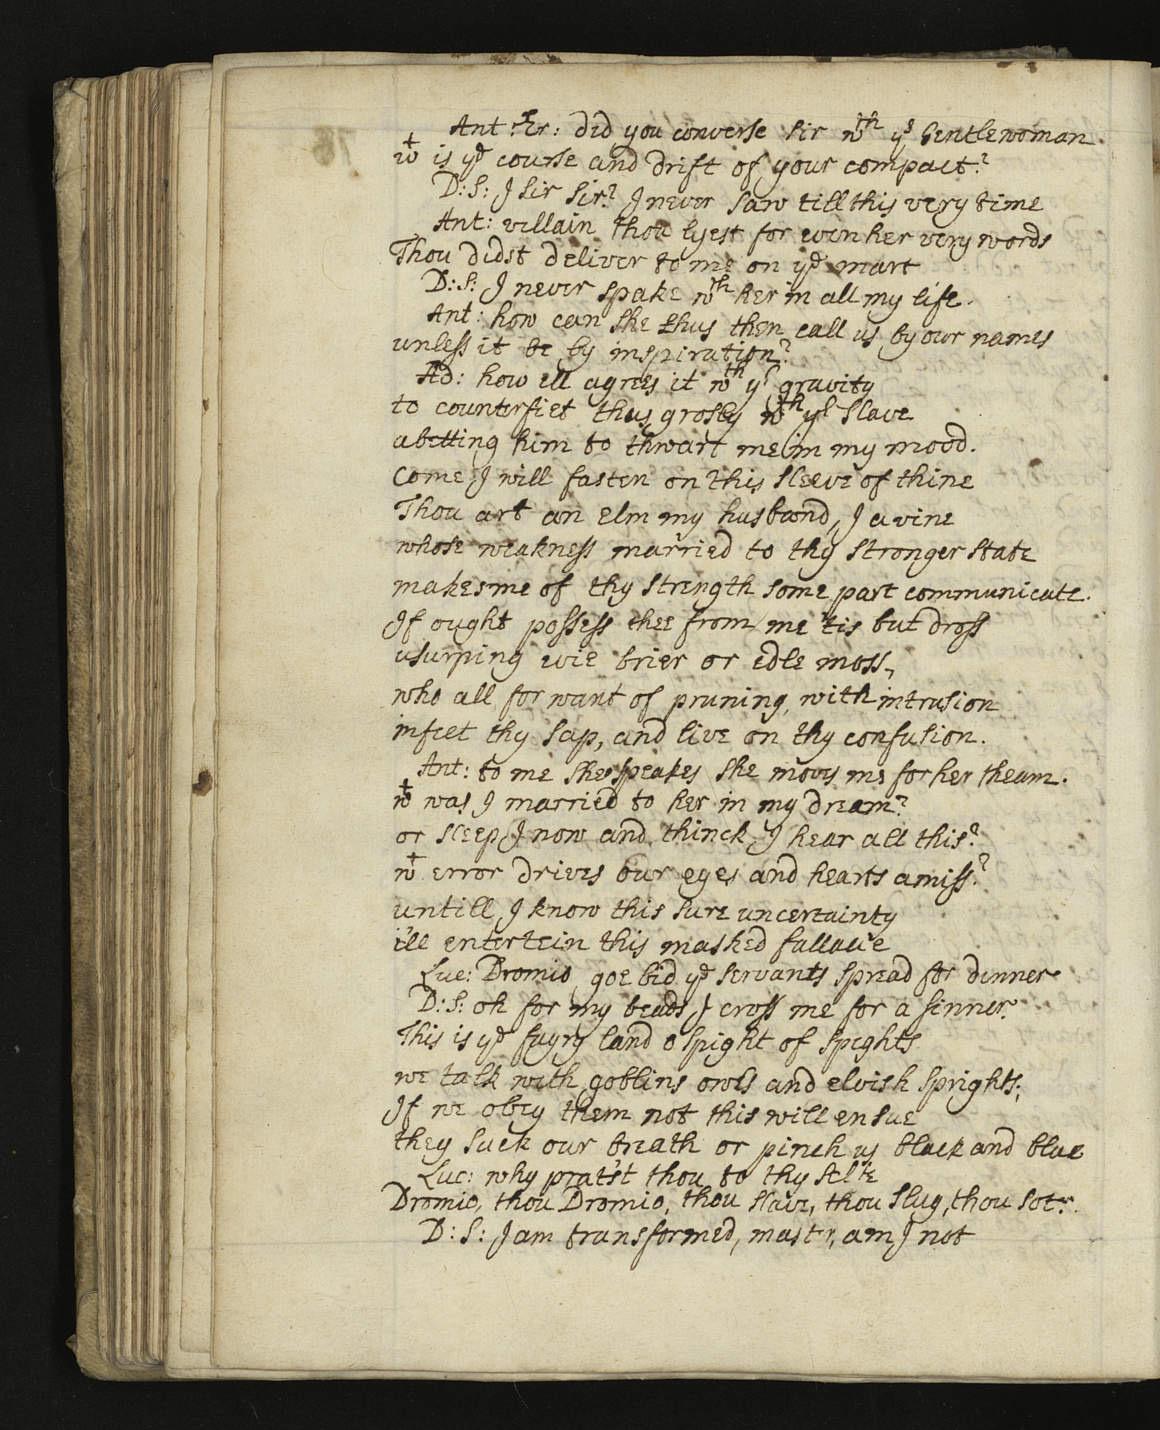 Ant: Er: did you converse sir wth ye Gentlewoman
wt is ye course and drift of your compact?
D:S: I sir sir? I never saw till this very time
Ant: villain thou lyest for even her very words
Thou didst deliver to me on ye mart
D:S: I never spake wth her in all my life.
Ant: how can she thus then call us by our names
unless it be by inspiration?
Ad: how ill agrees it wth yr gravity
to counterfiet thus grosly wth yr slave
abetting him to thwart me in my mood.
Come I will fasten on this sleeve of thine
Thou art an elm my husband, I a vine
whose weakness married to thy stronger state
makes me of thy strength some part communicate.
If ought possess thee from me 'tis but dross
usurping ivie brier or edle moss,
who all for want of pruning, with intrusion
infect thy sap, and live on thy confusion.
Ant: to me she speakes she moves me for her theam.
wt was I married to her in my dream?
or sleep I now and thinck I hear all this?
wt error drives our eyes and hearts amiss?
untill I know this sure uncertainty
i'll entertein this masked fallacie
Luc: Dromio goe bid ye servants spread for dinner
D:S: oh for my beads, I cross me for a sinner.
This is ye fayry land o spight of spights
we talk with goblins owls and elvish sprights;
If we obey them not this will ensue
they suck our breath or pinch us black and blue
Luc: why prat'st thou to thy selfe
Dromio, thou Dromio, thou slave, thou slug, thou sot.
D:S: I am transformed, mastr, am I not